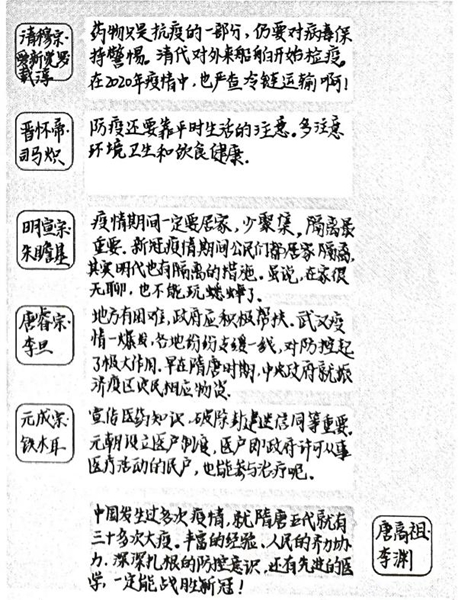 清穆宗·
爱新觉罗
载淳
药物只是抗疫的一部分，仍要对病毒保
持警惕。清代对外来船舶开始检疫。
在2020年疫情中，也严查冷链运输啊！
晋怀帝·
司马炽
防疫还要靠平时生活的注意。多注意
环境卫生和饮食健康。
明宣宗·
朱瞻基
疫情期间一定要居家，少聚集，隔离最
重要。新冠疫情期间公民们都居家隔离，
其实明代也有隔离的措施。虽说，在家很
无聊，也不能玩蟋蟀了。
唐睿宗·
李旦
地方有困难，政府应积极帮扶。武汉疫
情一爆发，各地纷纷支援一线，对防控起
了极大作用。早在隋唐时期，中央政府就赈
济疫区灾民相应物资。
元成宗·
铁木耳
宣传医药知识，破除封建迷信同等重要。
元朝设立医户制度，医户即政府许可从事
医疗活动的民户，也能参与治疗呢。
中国发生过多次疫情，就隋唐五代就有
三十多次大疫。丰富的经验、人民的齐力协
力、深深扎根的防控意识，还有先进的医
学，一定能战胜新冠！
唐高祖·
李渊